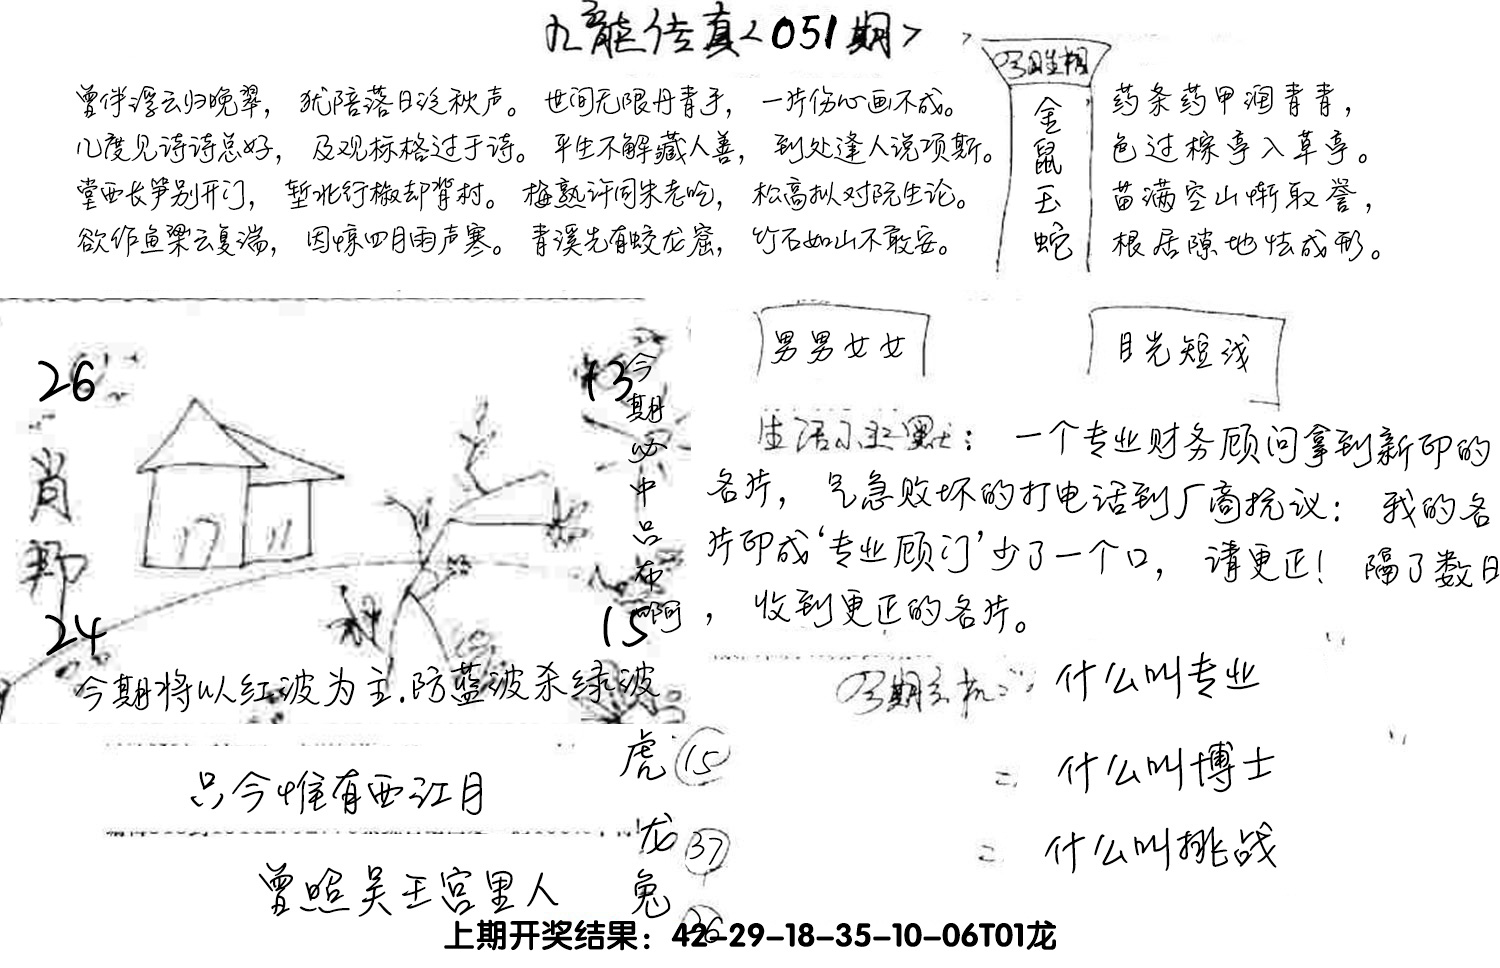 九龙传真<051期>
曾伴浮云归晚翠，犹陪落日泛秋声。世间无限丹青手，一片伤心画不成。
几度见诗诗总好，及观标格过于诗。平生不解藏人善，到处逢人说项斯。
堂西长笋别开门，堑北行椒却背村。梅熟许同朱老吃，松高拟对阮生论。
欲作鱼梁云复湍，因惊四月雨声寒。青溪先有蛟龙窟，竹石如山不敢安。
今日生相
金鼠玉蛇
药条药甲润青青，
色过棕亭入草亭。
苗满空山惭取誉，
根居隙地怯成形。
26
13
肖
那
24
15
今期必中吕布啊
今期将以红波为主.防蓝波杀绿波
男男女女
目光短浅
生活小幽默：一个专业财务顾问拿到新印的
名片，气急败坏的打电话到厂商抗议：我的名
片印成‘专业顾门’少了一个口，请更正！隔了数日
，收到更正的名片。
今期玄机：什么叫专业
什么叫博士
什么叫挑战
只今惟有西江月
曾照吴王宫里人
虎 15
龙 37
兔 26
上期开奖结果：42-29-18-35-10-06T01龙